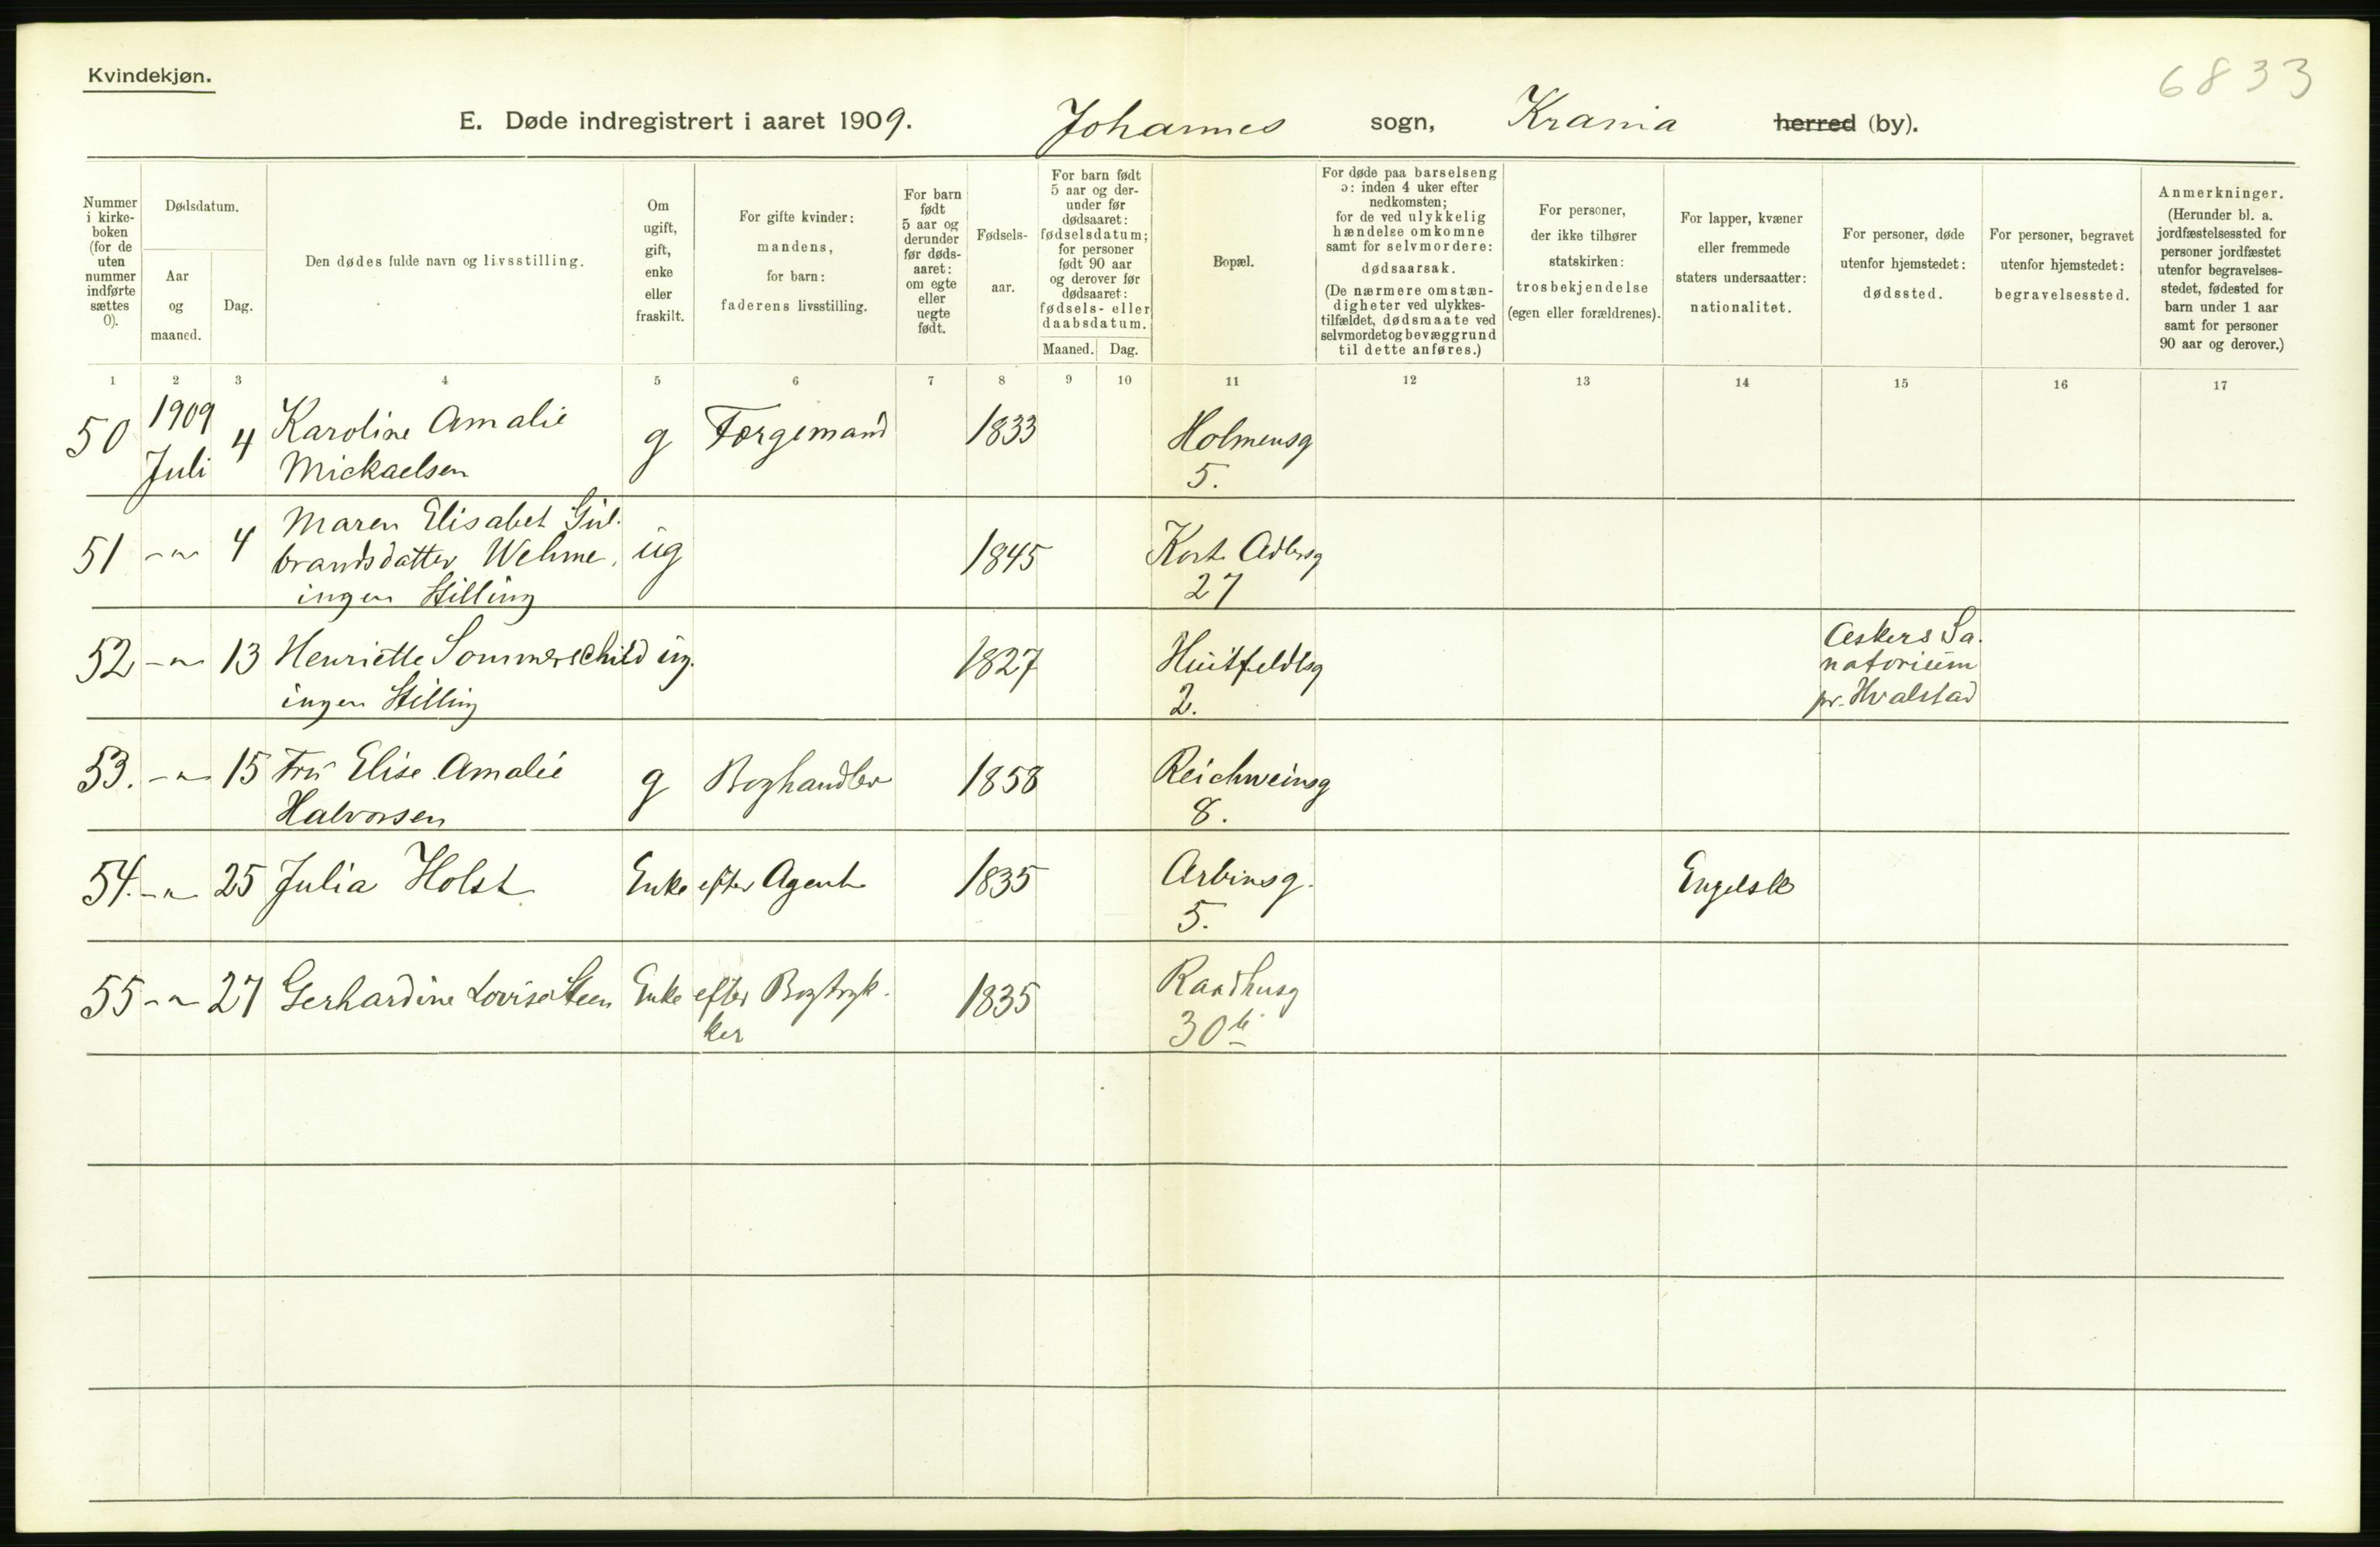 Kvindekjøn.
6833
E. Døde indregistrert i aaret 1909. Johannes sogn, Krania herred (by).
Nummer i kirke- boken (for de uten nummer indførte sættes 0).
Dødsdatum.
Aar og maaned.
Dag.
Den dødes fulde navn og livsstilling.
Om ugift, gift, enke eller fraskilt.
For gifte kvinder: mandens, for barn: faderens livsstilling.
For barn født 5 aar og derunder før døds- aaret: om egte eller uegte født.
Fødsels- aar.
For barn født 5 aar og der- under før dødsaaret: fødselsdatum; for personer født 90 aar og derover før dødsaaret: fødsels- eller daabsdatum.
Maaned. Dag.
Bopæl.
For døde paa barselseng ɔ: inden 4 uker efter nedkomsten; for de ved ulykkelig hændelse omkomne samt for selvmordere: dødsaarsak. (De nærmere omstæn- digheter ved ulykkes- tilfældet, dødsmaate ved selvmordet og bevæggrund til dette anføres.)
For personer, der ikke tilhører statskirken: trosbekjendelse (egen eller forældrenes).
For lapper, kvæner eller fremmede staters undersaatter: nationalitet.
For personer, døde utenfor hjemstedet: dødssted.
For personer, begravet utenfor hjemstedet: begravelsessted.
Anmerkninger. (Herunder bl. a. jordfæstelsessted for personer jordfæstet utenfor begravelses- stedet, fødested for barn under 1 aar samt for personer 90 aar og derover.)
1 2 3 4 5 6 7 8 9 10 11 12 13 14 15 16 17
50 1909 Juli 4 Karoline Amalie Mickaelsen g Færgemand 1833 Holmensg 5.
51 -"- 4 Maren Elisabet Gul- brandsdatter Wehme, ingen Stilling ug 1845 Kort Adlersg 27
52 -"- 13 Henriette Sommerschild ug. ingen Stilling 1827 Huitfeldtsg 2. Askers Sa- natorium pr. Hvalstad
53. -"- 15 Fru Elise Amalie Halvorsen g Boghandler 1858 Reichweinsg 8.
54. -"- 25 Julia Holst Enke efter Agent 1835 Arbinsg. 5. Engelsk
55 -"- 27 Gerhardine Lovise Steen Enke efter Bogtryk- ker 1835 Raadhusg 30